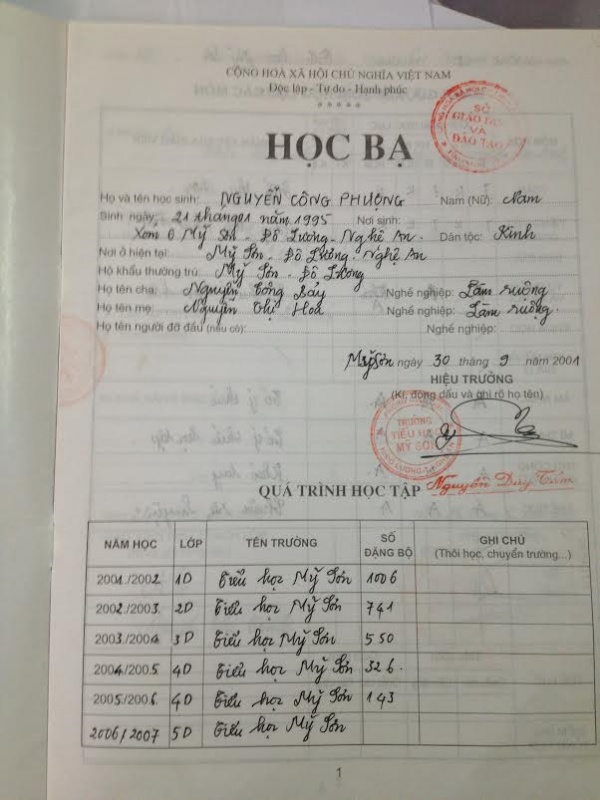 CỘNG HOÀ XÃ HỘI CHỦ NGHĨA VIỆT NAM
Độc lập - Tự do - Hạnh phúc
*****
SỞ
GIÁO DỤC
VÀ
ĐÀO TẠO
HỌC BẠ
Họ và tên học sinh: NGUYỄN CÔNG PHƯỢNG Nam (Nữ): Nam
Sinh ngày: 21 tháng 01 năm 1995 Nơi sinh:
Xóm 6 Mỹ Sơn - Đô Lương - Nghệ An. Dân tộc: Kinh
Nơi ở hiện tại: Mỹ Sơn - Đô Lương - Nghệ An
Hộ khẩu thường trú: Mỹ Sơn - Đô Lương
Họ tên cha: Nguyễn Công Bảy Nghề nghiệp: Làm ruộng
Họ tên mẹ: Nguyễn Thị Hoa Nghề nghiệp: Làm ruộng
Họ tên người đỡ đầu (nếu có): Nghề nghiệp:
Mỹ Sơn ngày 30 tháng 9 năm 2001
HIỆU TRƯỞNG
(Kí, đóng dấu và ghi rõ họ tên)
TRƯỜNG
TIỂU HỌC
MỸ SƠN
Nguyễn Duy Tám
QUÁ TRÌNH HỌC TẬP
NĂM HỌC LỚP TÊN TRƯỜNG SỐ ĐĂNG BỘ GHI CHÚ (Thôi học, chuyển trường...)
2001/2002 1D Tiểu học Mỹ Sơn 1006
2002/2003 2D Tiểu học Mỹ Sơn 741
2003/2004 3D Tiểu học Mỹ Sơn 550
2004/2005 4D Tiểu học Mỹ Sơn 326.
2005/2006 4D Tiểu học Mỹ Sơn 143
2006/2007 5D Tiểu học Mỹ Sơn
1